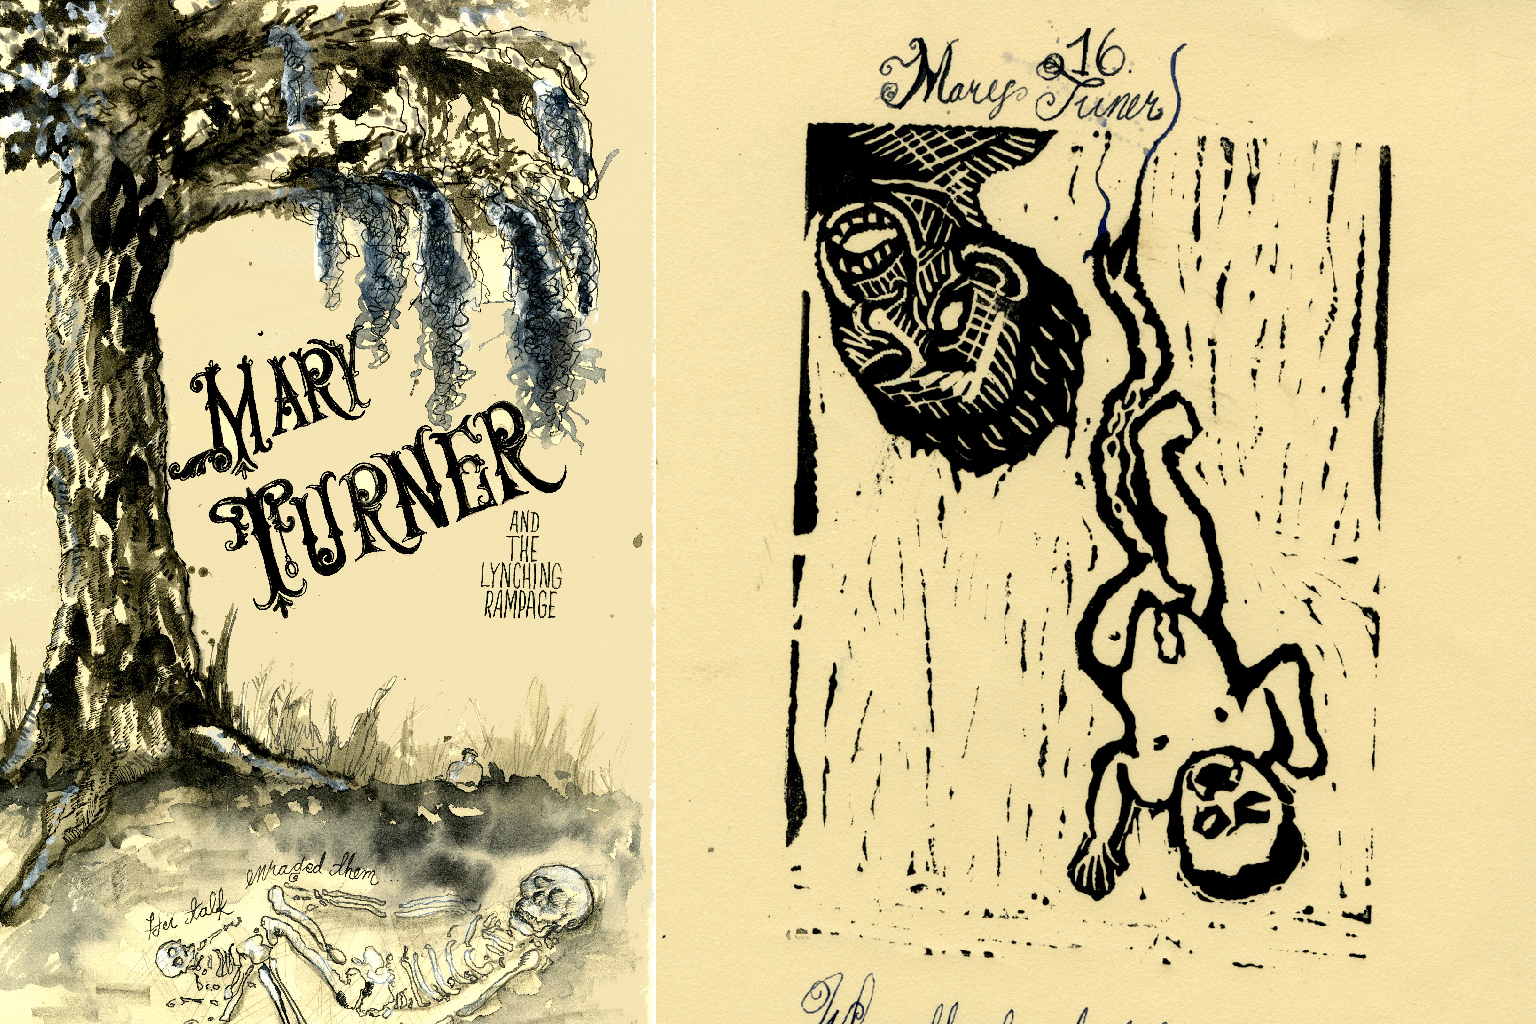 MARY
TURNER
AND
THE
LYNCHING
RAMPAGE
Her talk
enraged them
16
Mary Turner